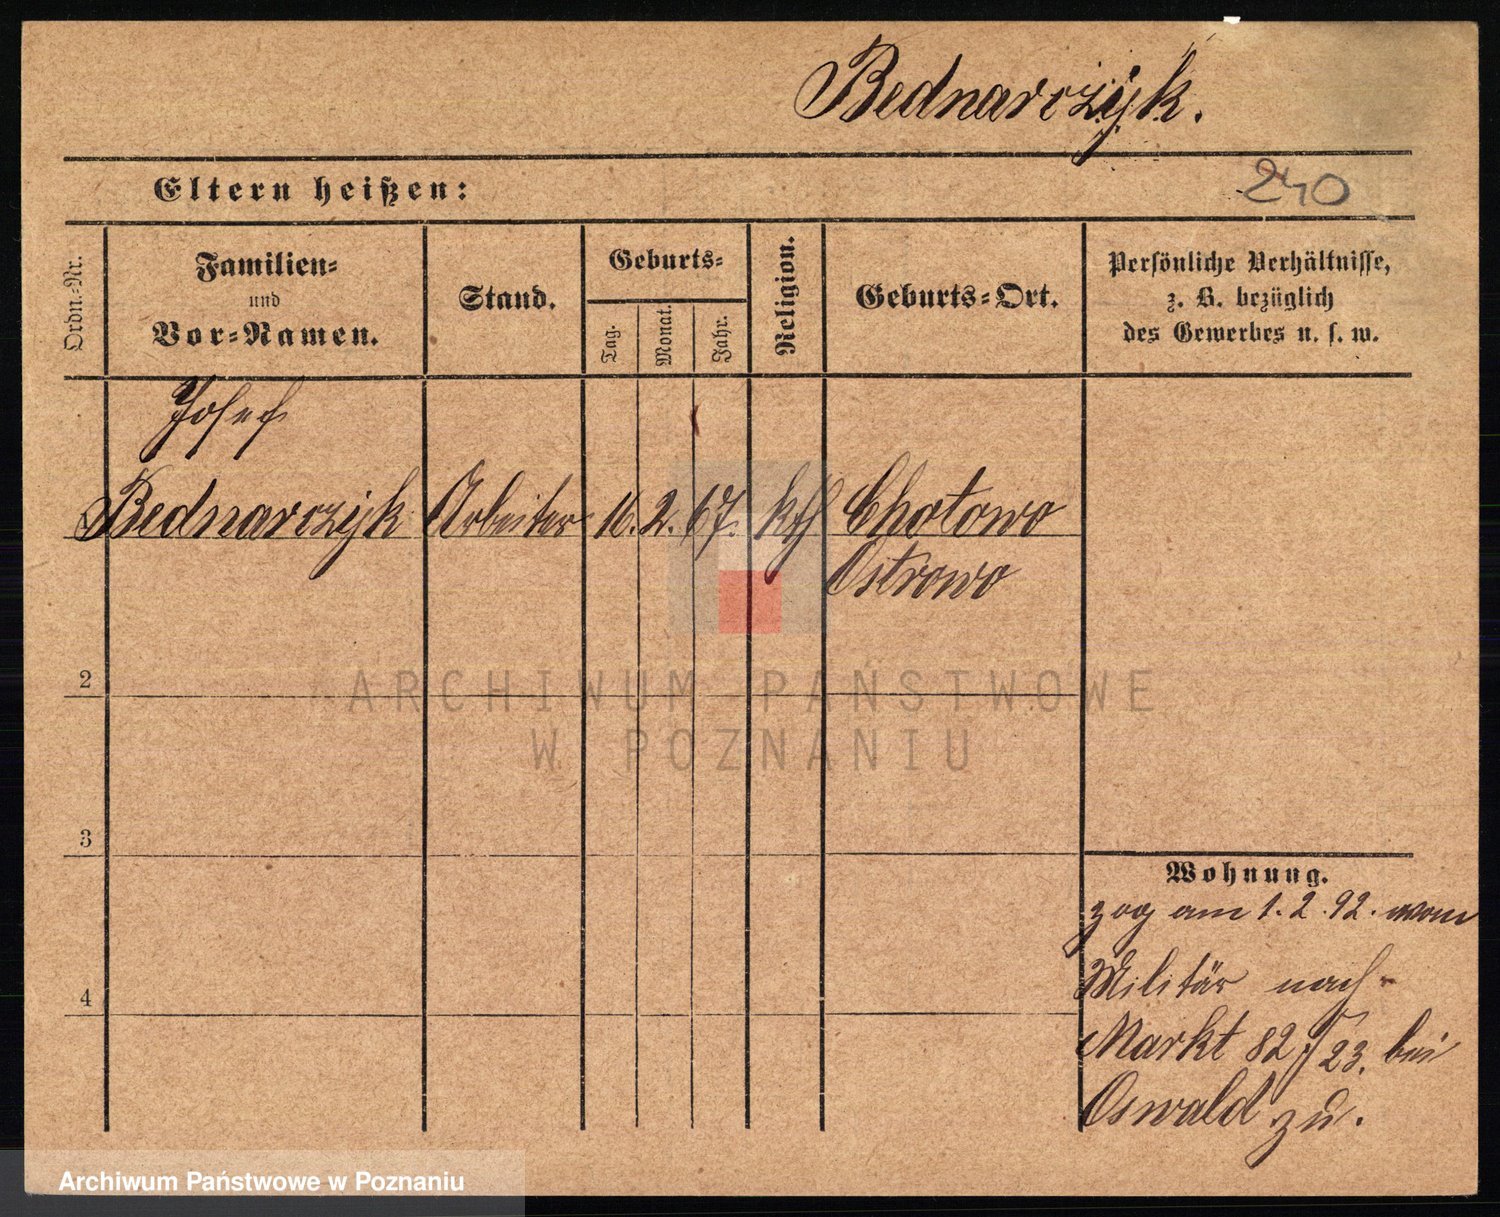 Bednarczyk.
Eltern heißen:
240
Ordn.-Nr.
Familien-
und
Vor-Namen.
Stand.
Geburts-
Tag.
Monat.
Jahr.
Religion.
Geburts-Ort.
Persönliche Verhältnisse,
z. B. bezüglich
des Gewerbes u. s. w.
Josef
Bednarczyk Arbeiter 16. 2. 67. kth Chotowo
Ostrowo
2
ARCHIWUM PAŃSTWOWE
W POZNANIU
3
Wohnung.
zog am 1. 2. 92. vom
4
Militär nach
Markt 82/23. bei
Oswald zu.
Archiwum Państwowe w Poznaniu